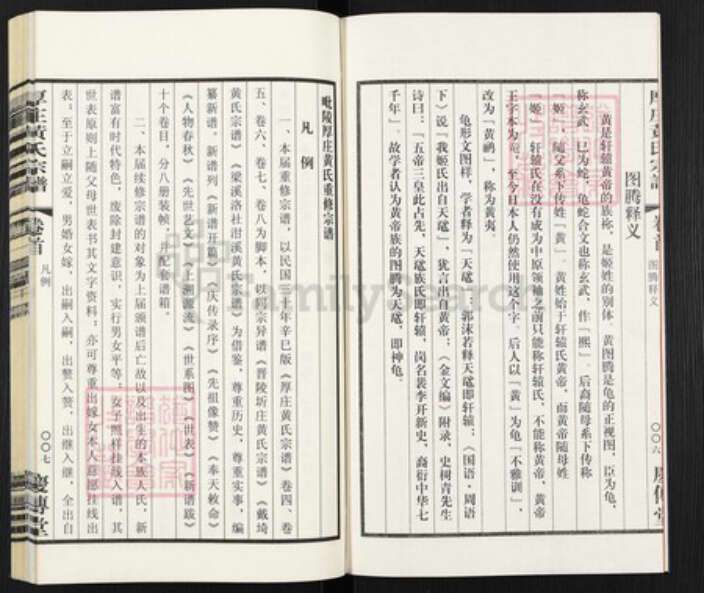 厚庄黄氏宗谱
卷首
图腾释义
〇〇六
图腾释义
黄是轩辕黄帝的族称，是姬姓的别体。黄图腾是龟的正视图，臣为龟，
称玄武，巳为蛇，龟蛇合文也称玄武，作「熙」。后裔随母系下传称
「姬」，随父系下传姓「黄」。黄姓始于轩辕氏黄帝，而黄帝随母姓
「姬」。轩辕氏在没有成为中原领袖之前只能称轩辕氏，不能称黄帝，黄帝
王字本为，至今日本人仍然使用这个字。后人以「黄」为龟「不雅训」，
改为「黄鹂」，称为黄夷。
龟形文图样，学者释为「天鼋」，郭沫若释天鼋即轩辕；《国语·周语
下》说「我姬氏出自天鼋」，犹言出自黄帝；《金文编》附录，史树青先生
诗曰：「五帝三皇此占先，天鼋族氏即轩辕，岗名裴李开新史，裔衍中华七
千年」。故学者认为黄帝族的图腾为天鼋，即神龟。
毗陵厚庄黄氏重修宗谱
凡例
一、本届重修宗谱，以民国三十年辛巳版《厚庄黄氏宗谱》卷四、卷
五、卷六、卷七、卷八为脚本，以同宗异谱《晋陵圻庄黄氏宗谱》《戴埼
黄氏宗谱》《梁溪洛社泔溪黄氏宗谱》为借鉴，尊重历史，尊重实事，编
纂新谱。新谱列《新谱开篇》《庆传录序》《先祖像赞》《奉天敕命》
《人物春秋》《先世艺文》《上溯源流》《世系图》《世表》《新谱跋》
十个卷目，分八册装帧，并配套谱箱。
二、本届续修宗谱的对象为上届颁谱后亡故以及出生的本族人氏，新
谱富有时代特色，废除封建意识，实行男女平等；女子照样挂线入谱，其
世表原则上随父母世表书其文字资料；亦可尊重出嫁女本人意愿挂线出
表；至于立嗣立爱，男婚女嫁，出嗣入嗣，出赘入赘，出继入继，全出自
厚庄黄氏宗谱
卷首
凡例
〇〇七
庆传堂
FamilySearch